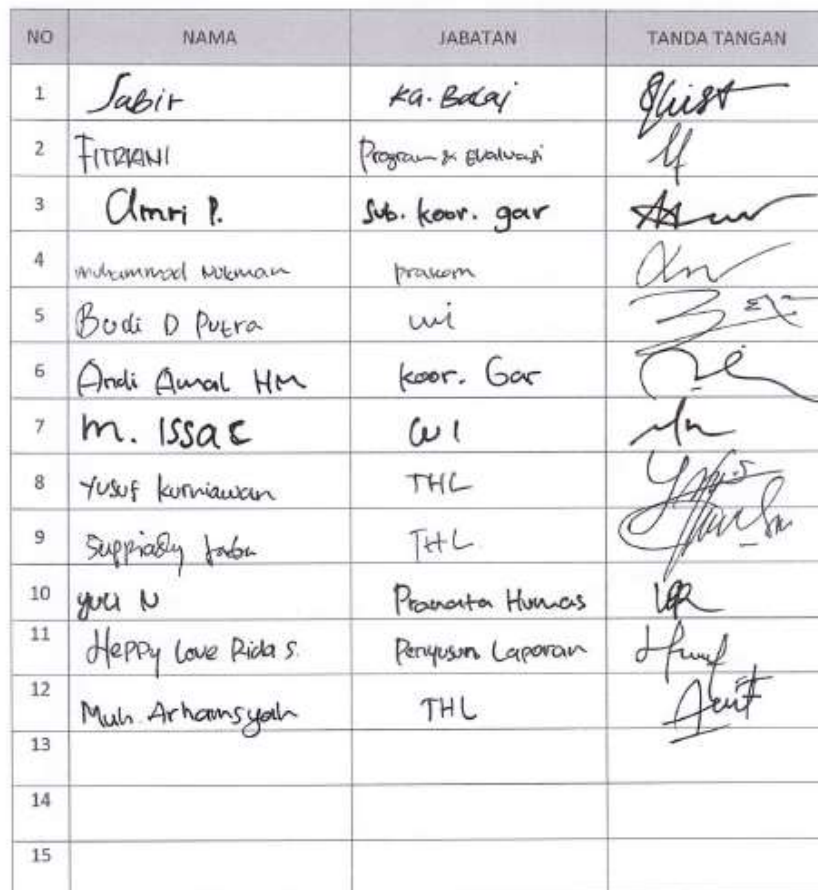 NO NAMA JABATAN TANDA TANGAN
1 Sabir Ka. Balai
2 FITRIANI Program & Evaluasi
3 Amri P. Sub. koor. gar
4 Muhammad Nukman prakom
5 Budi D Putra wi
6 Andi Amal HM koor. Gar
7 M. ISSAC WI
8 Yusuf kurniawan THL
9 THL
10 Yuli N Pranata Humas
11 Heppy Love Rida S. Penyusun Laporan
12 Muh. Arhamsyah THL
13
14
15